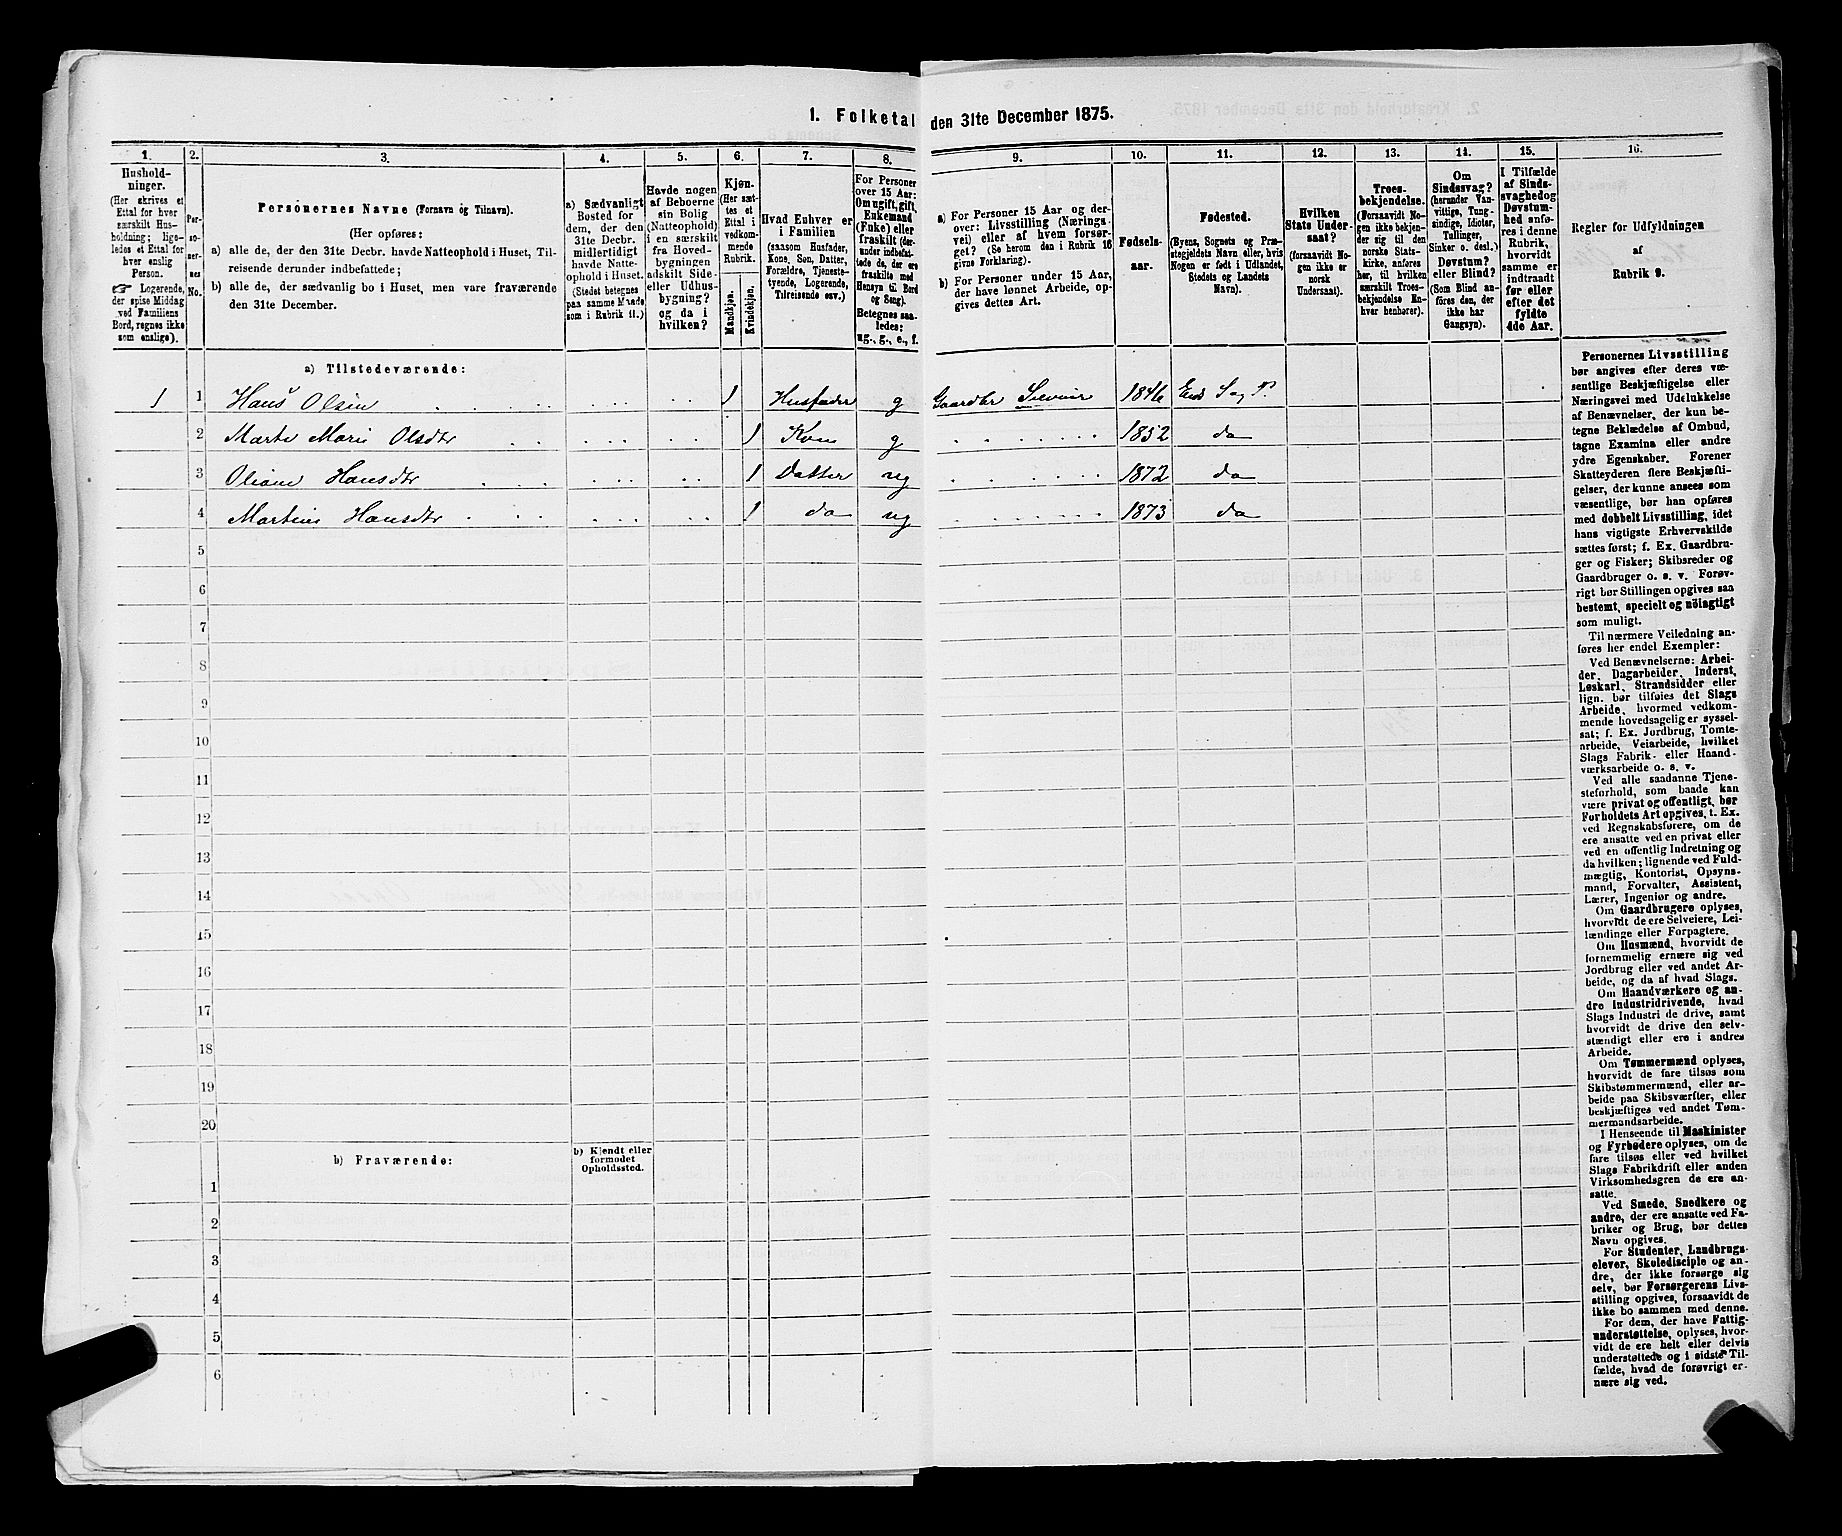 1. Folketal den 31te December 1875.
1. 2. 3. 4. 5. 6. 7. 8. 9. 10. 11. 12. 13. 14. 15. 16.
Hushold-
ninger.
(Her skrives et
Ettal for hver
særskilt Hus-
holdning; lige-
ledes et Ettal for
hver enslig
Person.
☞ Logerende,
der spise Middag
ved Familiens
Bord, regnes ikke
som enslige).
Per-
so-
ner-
nes
No.
Personernes Navne (Fornavn og Tilnavn).
(Her opføres:
a) alle de, der den 31te Decbr. havde Natteophold i Huset, Til-
reisende derunder indbefattede;
b) alle de, der sædvanlig bo i Huset, men vare fraværende
den 31te December.
a) Sædvanligt
Bosted for
dem, der den
31te Decbr.
midlertidigt
havde Natte-
ophold i Huset.
(Stedet betegnes
paa samme Maade
som i Rubrik 11.)
Havde nogen
af Beboerne
sin Bolig
(Natteophold)
i en særskilt
fra Hoved-
bygningen
adskilt Side-
eller Udhus-
bygning?
og da i
hvilken?
Kjøn.
(Her sæt-
tes et
Ettal i
vedkom-
mende
Rubrik.
Mandkjøn.
Kvindekjøn.
Hvad Enhver er
i Familien
(saasom Husfader,
Kone, Søn, Datter,
Forældre, Tjeneste-
tyende, Logerende,
Tilreisende osv.)
For Personer
over 15 Aar:
Om ugift, gift,
Enkemand
(Enke) eller
fraskilt (der-
under indbefat-
tede de, der ere
fraskilte med
Hensyn til Bord
og Seng).
Betegnes saa-
ledes:
ug., g., e., f.
a) For Personer 15 Aar og der-
over: Livsstilling (Nærings-
vei) eller af hvem forsør-
get? (Se herom den i Rubrik 16
givne Forklaring).
b) For Personer under 15 Aar,
der have lønnet Arbeide, op-
gives dettes Art.
Fødsels-
aar.
Fødested.
(Byens, Sognets og Præ-
stegjeldets Navn, eller, hvis
Nogen er født i Udlandet,
Stedets og Landets
Navn).
Hvilken
Stats Under-
saat?
(forsaavidt No-
gen ikke er
norsk
Undersaat).
Troes-
bekjendelse.
(Forsaavidt No-
gen ikke bekjen-
der sig til den
norske Stats-
kirke, anføres
her, til hvilken
særskilt Troes-
bekjendelse En-
hver henhører).
Om
Sindssvag?
(herunder Van-
vittige, Tung-
sindige, Idioter,
Tullinger,
Sinker o. desl.)
Døvstum?
eller Blind?
(Som Blind an-
føres den, der
ikke har
Gangsyn).
I Tilfælde
af Sinds-
svaghed og
Døvstum-
hed anfø-
res i denne
Rubrik,
hvorvidt
samme er
indtraadt
før eller
efter det
fyldte
4de Aar.
Regler for Udfyldningen
af
Rubrik 9.
a) Tilstedeværende:
1 1 Hans Olsen 1 Husfader g Gaardbr Selveier 1846 Eids S og P.
2 Marte Marie Olsdtr 1 Kone g 1852 do
3 Oliane Hansdtr 1 Datter ug 1872 do
4 Martine Hansdtr 1 do ug 1873 do
5
6
7
8
9
10
11
12
13
14
15
16
17
18
19
20
b) Fraværende:
b) Kjendt eller
formodet
Opholdssted.
1
2
3
4
5
6
Personernes Livsstilling
bør angives efter deres væ-
sentlige Beskjæftigelse eller
Næringsvei med Udelukkelse
af Benævnelser, der kun be-
tegne Beklædelse af Ombud,
tagne Examina eller andre
ydre Egenskaber. Forener
Skatteyderen flere Beskjæfti-
gelser, der kunne ansees som
væsentlige, bør han opføres
med dobbelt Livsstilling, idet
hans vigtigste Erhvervskilde
sættes først; f. Ex. Gaardbru-
ger og Fisker; Skibsreder og
Gaardbruger o. s. v. Forøv-
rigt bør Stillingen opgives saa
bestemt, specielt og nöiagtigt
som muligt.
Til nærmere Veiledning an-
føres her endel Exempler:
Ved Benævnelserne: Arbei-
der, Dagarbeider, Inderst,
Løskarl, Strandsidder eller
lign. bør tilføies det Slags
Arbeide, hvormed vedkom-
mende hovedsagelig er syssel-
sat; f. Ex. Jordbrug, Tomte-
arbeide, Veiarbeide, hvilket
Slags Fabrik- eller Haand-
værksarbeide o. s. v.
Ved alle saadanne Tjene-
steforhold, som baade kan
være privat og offentligt, bør
Forholdets Art opgives, t. Ex.
ved Regnskabsførere, om de
ere ansatte ved en privat eller
ved en offentlig Indretning og
da hvilken; lignende ved Fuld-
mægtig, Kontorist, Opsyns-
mand, Forvalter, Assistent,
Lærer, Ingeniør og andre.
Om Gaardbrugere oplyses,
hvorvidt de ere Selveiere, Lei-
lændinge eller Forpagtere.
Om Husmænd, hvorvidt de
fornemmelig ernære sig ved
Jordbrug eller ved andet Ar-
beide, og da af hvad Slags.
Om Haandværkere og an-
dre Industridrivende, hvad
Slags Industri de drive, samt
hvorvidt de drive den selv-
stændigt eller ere i andres
Arbeide.
Om Tømmermænd oplyses,
hvorvidt de fare tilsøs som
Skibstømmermænd, eller ar-
beide paa Skibsværfter, eller
beskjæftiges ved andet Tøm-
mermandsarbeide.
I Henseende til Maskinister
og Fyrbødere oplyses, om de
fare tilsøs eller ved hvilket
Slags Fabrikdrift eller anden
Virksomhedsgren de ere an-
satte.
Ved Smede, Snedkere og
andre, der ere ansatte ved Fa-
briker og Brug, bør dettes
Navn opgives.
For Studenter, Landbrugs-
elever, Skoledisciple og an-
dre, der ikke forsørge sig
selv, bør Forsørgerens Livs-
stilling opgives, forsaavidt de
ikke bo sammen med denne.
For dem, der have Fattig-
understøttelse, oplyses, hvor-
vidt de ere helt eller delvis
understøttede og i sidste Til-
fælde, hvad de forøvrigt er-
nære sig ved.